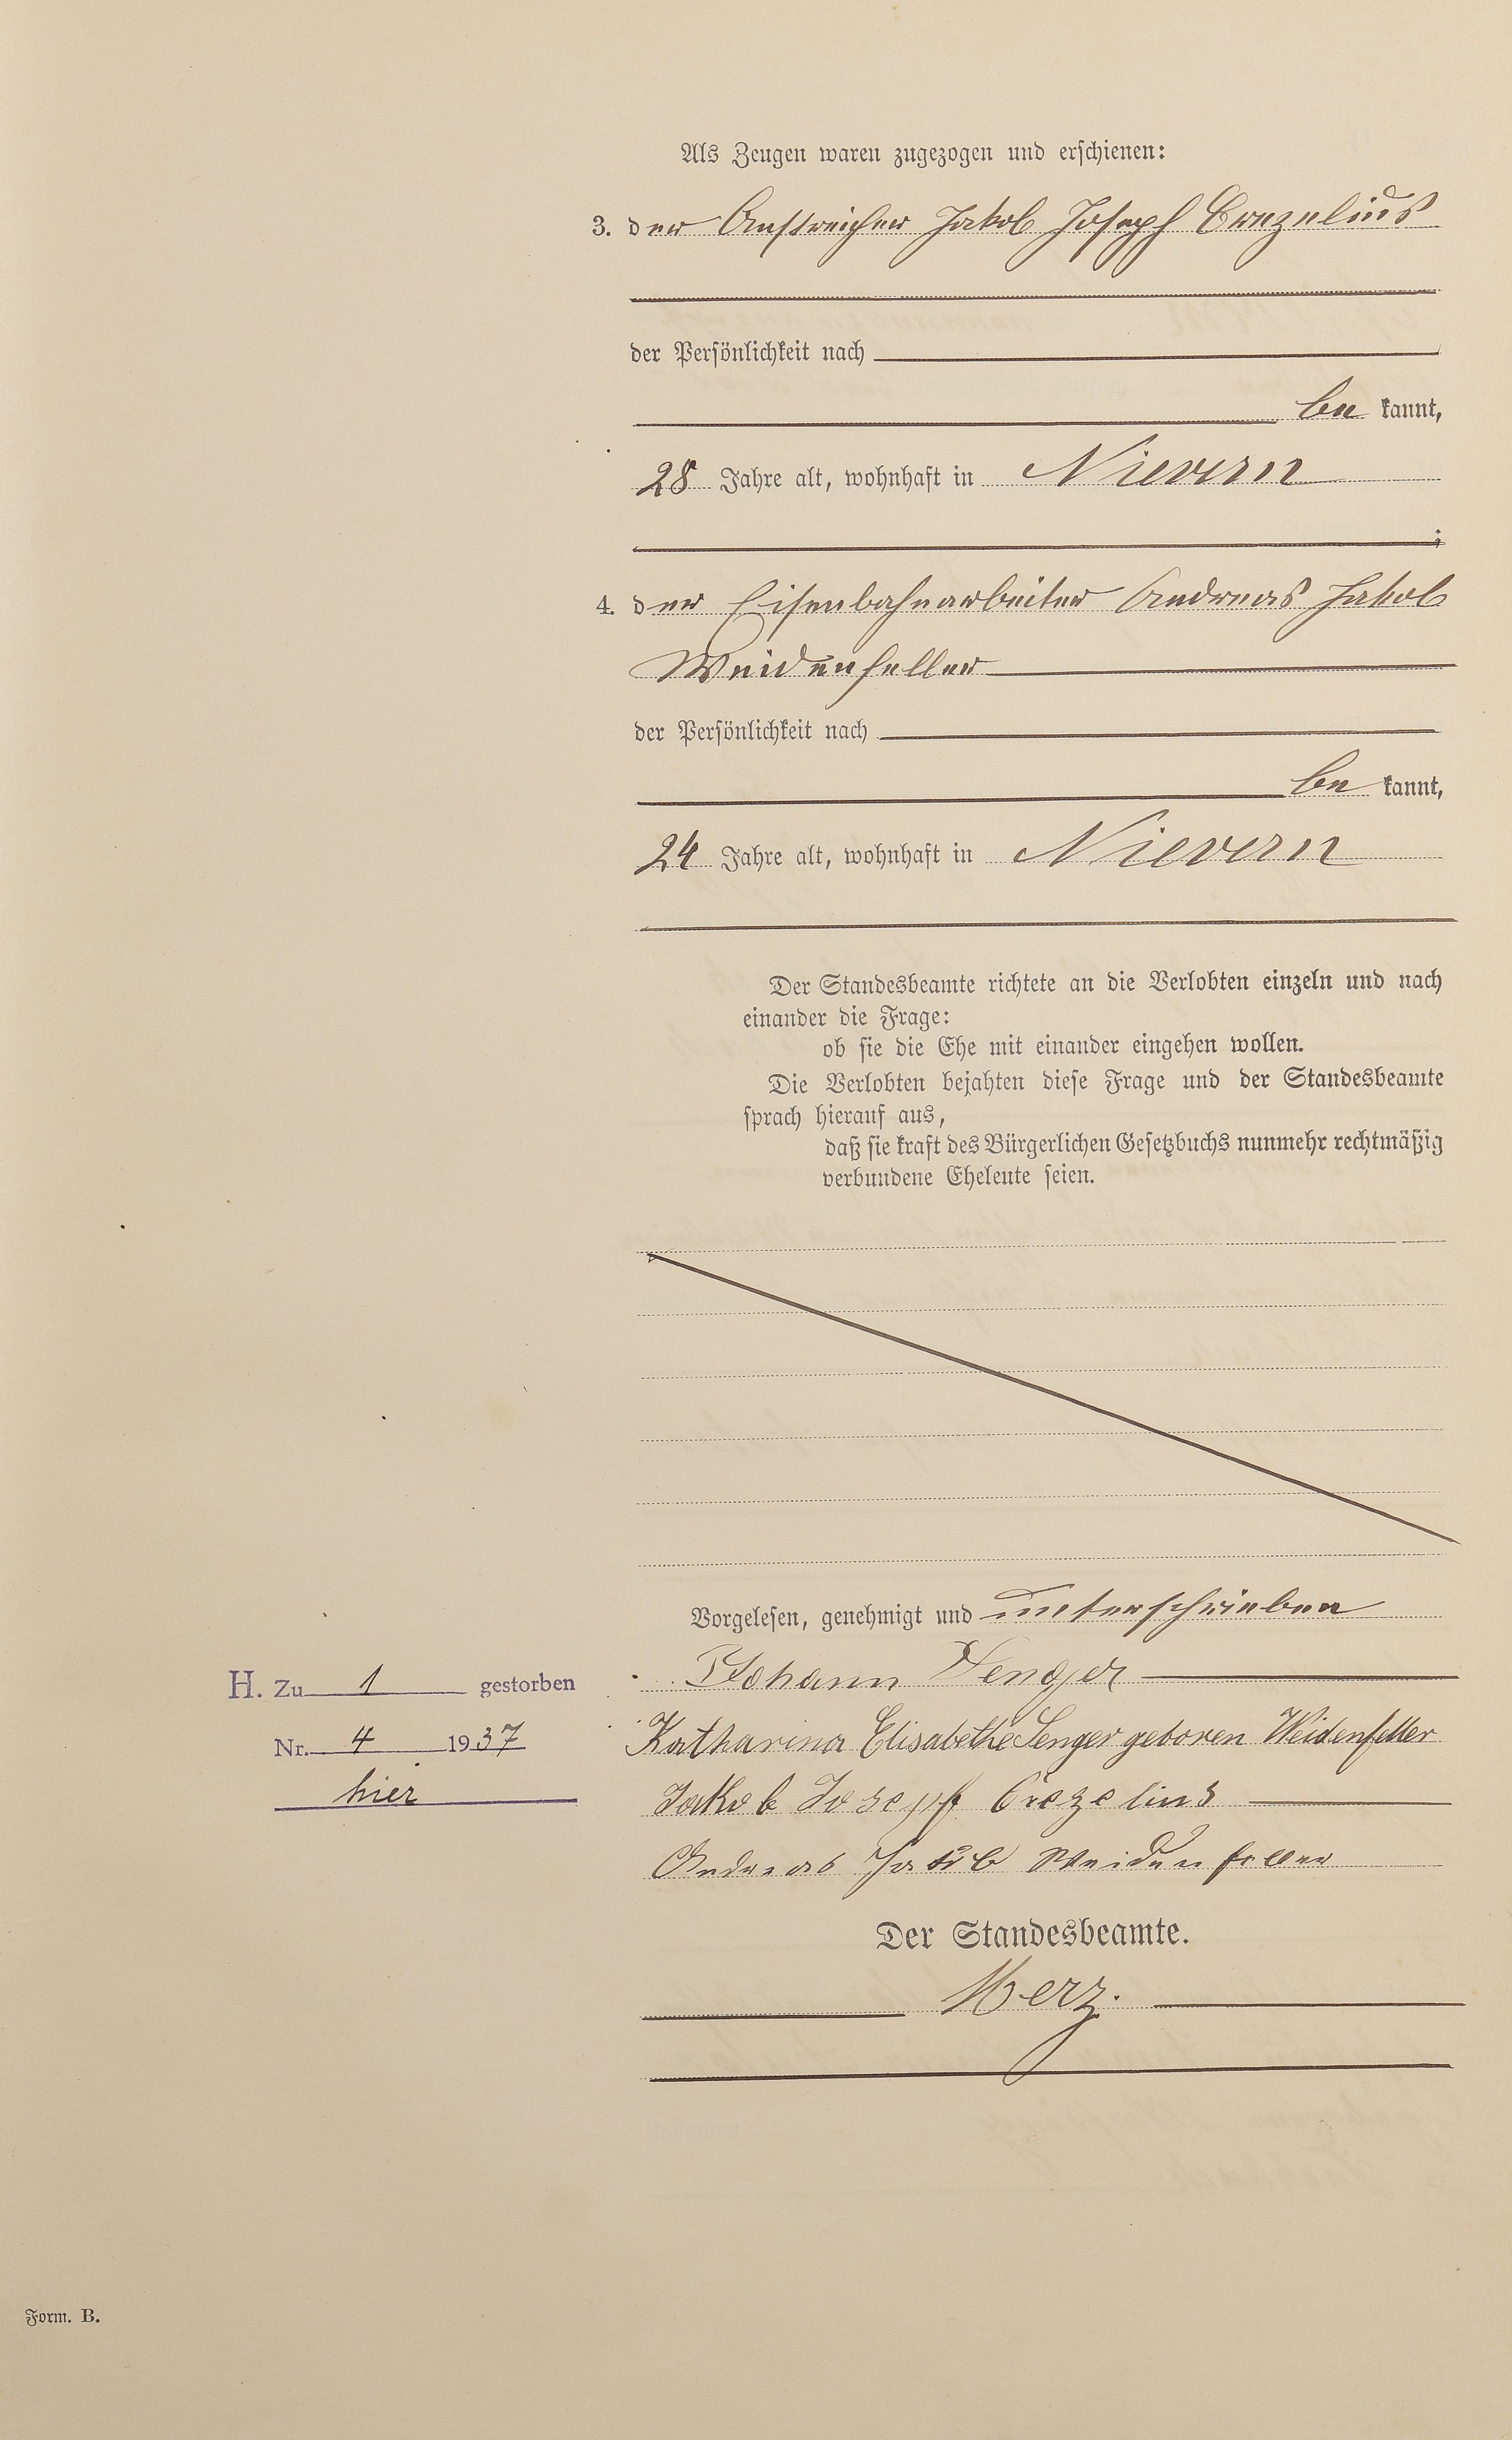 Als Zeugen waren zugezogen und erschienen:
3. der Anstreicher Jakob Joseph Crezelius
der Persönlichkeit nach
be kannt,
28 Jahre alt, wohnhaft in Nievern
;
4. der Eisenbahnarbeiter Andreas Jakob
Weidenfeller
der Persönlichkeit nach
be kannt,
24 Jahre alt, wohnhaft in Nievern
Der Standesbeamte richtete an die Verlobten einzeln und nach
einander die Frage:
ob sie die Ehe mit einander eingehen wollen.
Die Verlobten bejahten diese Frage und der Standesbeamte
sprach hierauf aus,
daß sie kraft des Bürgerlichen Gesetzbuchs nunmehr rechtmäßig
verbundene Eheleute seien.
Vorgelesen, genehmigt und unterschrieben
Johann Senger
Katharina Elisabethe Senger geboren Weidenfeller
Jakob Josepf Crezelius
Andreas Jakob Weidenfeller
Der Standesbeamte.
Merz.
H. Zu 1 gestorben
Nr. 4 1937
hier
Form. B.